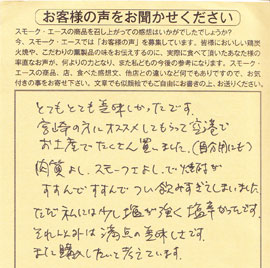 お客様の声をお聞かせください
スモーク・エースの商品を召し上がっての感想はいかがでしたでしょうか?
今、スモーク・エースでは「お客様の声」を募集しています。皆様においしい鶏炭
火焼や、こだわりの薫製品の味をお伝えするのに、実際に食べて頂いたあなた様の
率直なお声が、何よりの力となり、また私どもの今後の参考になります。スモーク・
エースの商品、店、食べた感想文、他店との違いなど何でもありですので、お気
付きの事をお寄せ下さい。文章でも似顔絵でもご自由にお書きの上、お送りください。
とてもとても美味しかったです。
宮崎の方にオススメしてもらって空港で
お土産でたくさん買いました。(自分用にも)
肉質よし、スモークよしで焼酎が
すすんですすんでつい飲みすぎてしまいました
ただ私には少し塩が強く塩辛かったです。
それ以外は満点の美味しさです。
また購入したいと考えています。